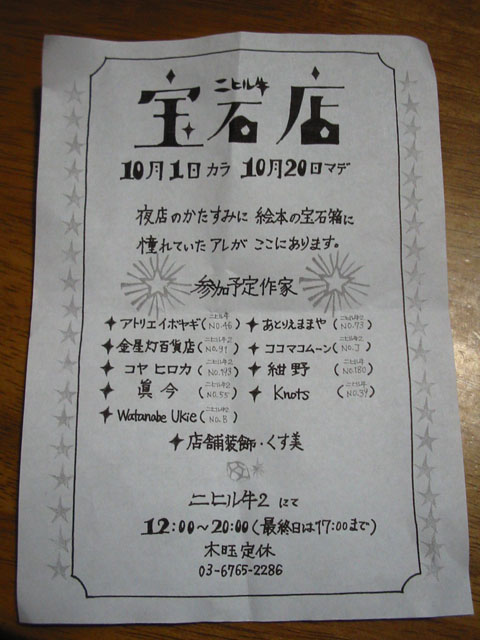 ニヒル牛
宝石店
10月1日カラ 10月20日マデ
夜店のかたすみに 絵本の宝石箱に
憧れていたアレが ここにあります。
参加予定作家
アトリエイボヤギ(ニヒル牛 NO.46) あとりえままや(ニヒル牛2 NO.73)
金星灯百貨店(ニヒル牛2 NO.91) ココマコムーン(ニヒル牛2 NO.3)
コヤ ヒロカ(ニヒル牛2 NO.193) 紺野(ニヒル牛 NO.180)
眞今(ニヒル牛2 NO.55) Knots(ニヒル牛 NO.39)
Watanabe Ukie(ニヒル牛2 NO.8)
店舗装飾・くす美
ニヒル牛2 にて
12:00〜20:00(最終日は17:00まで)
木旺定休
03-6765-2286